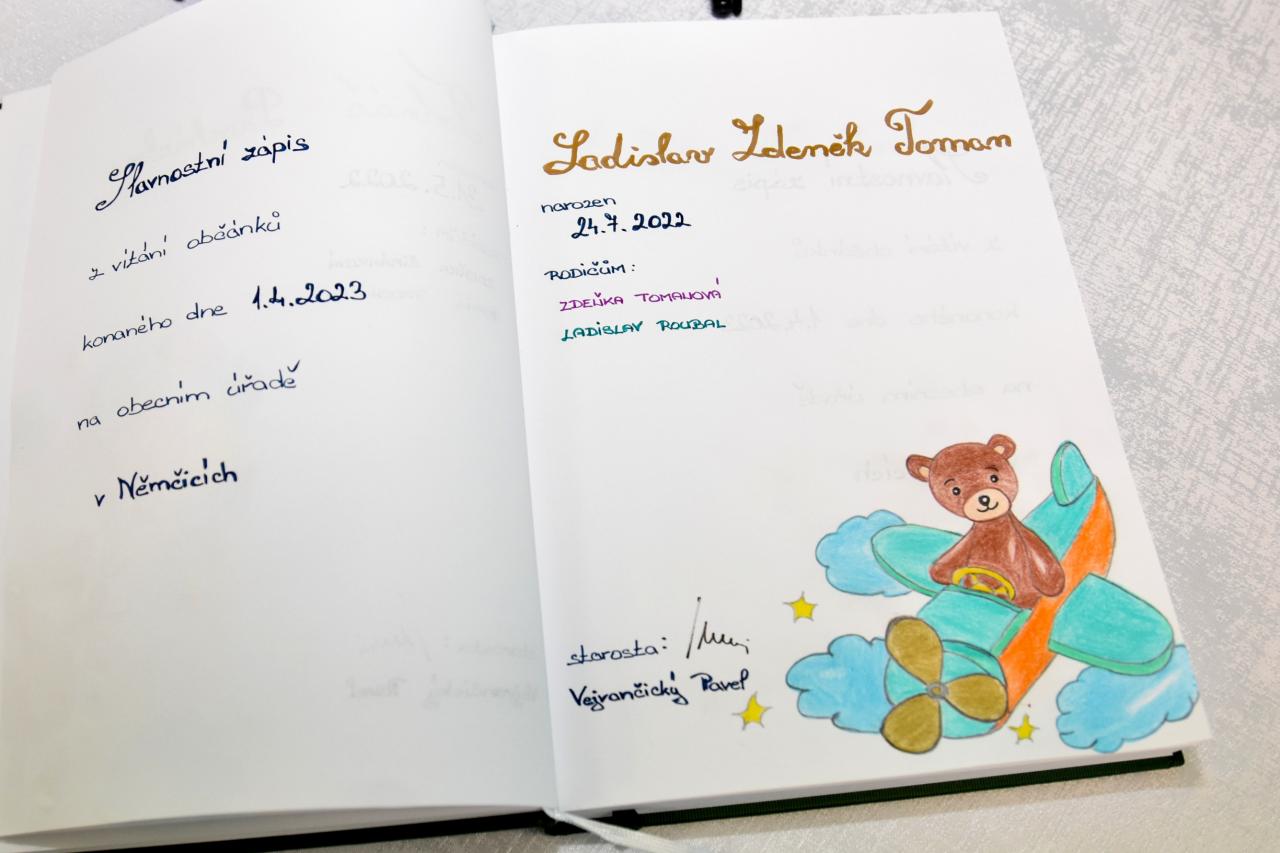 Slavnostní zápis
z vítání občánků
konaného dne 1.4.2023
na obecním úřadě
v Němčicích
Ladislav Zdeněk Toman
narozen
24.7.2022
RODIČŮM:
ZDEŇKA TOMANOVÁ
LADISLAV ROUBAL
starosta:
Vejrančický Pavel